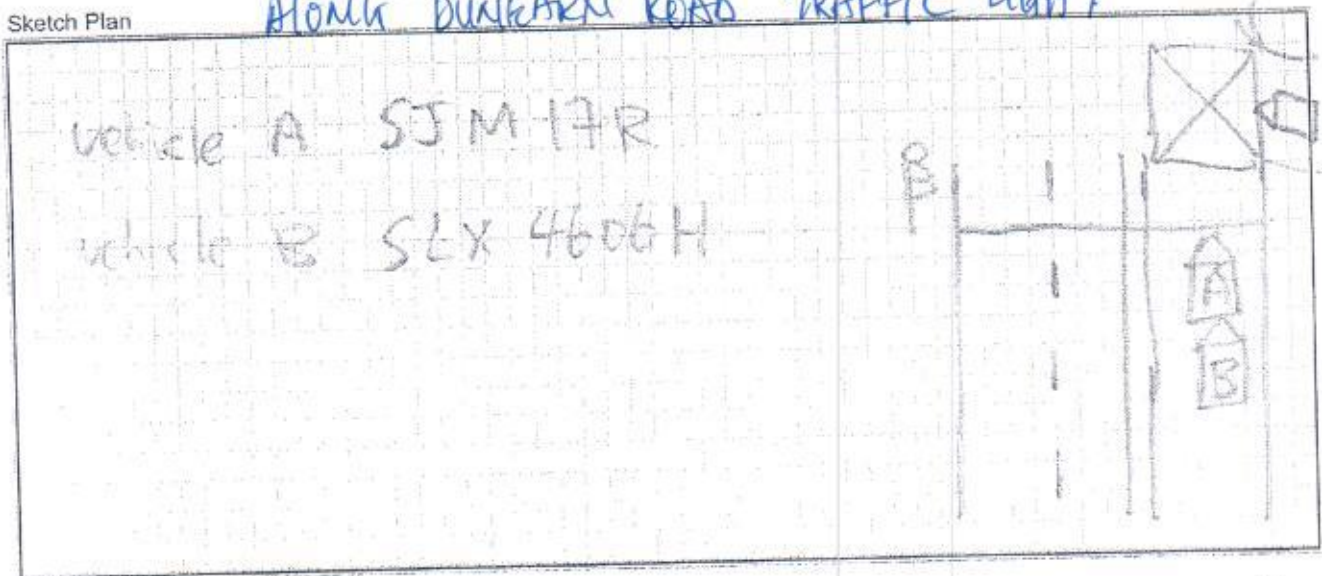 Sketch Plan
ALONG DUNEARN ROAD TRAFFIC LIGHT
vehicle A SJM 17R
vehicle B SLX 4606H
A
B